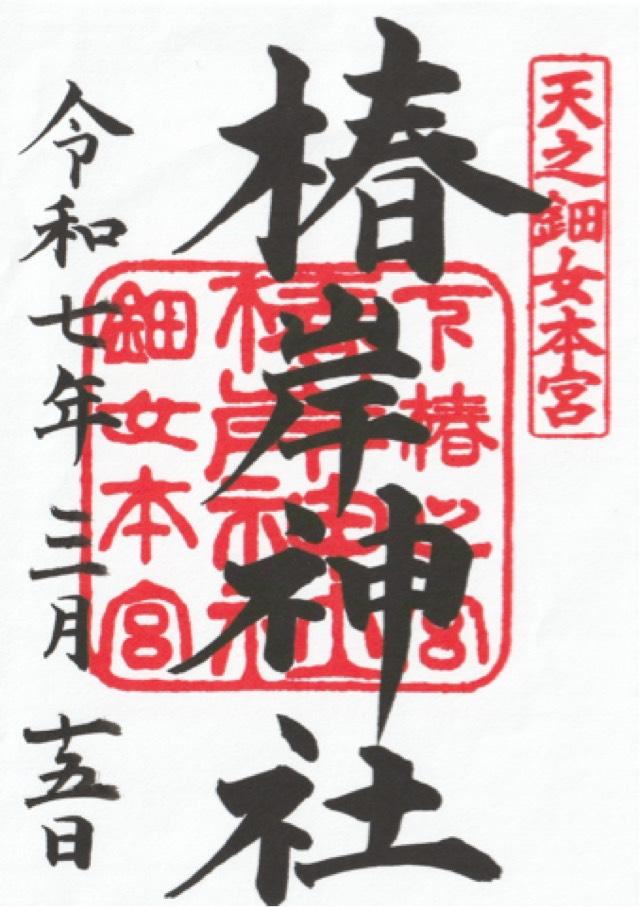 天之鈿女本宮
椿岸神社
下椿之宮
椿岸神社
鈿女本宮
令和七年三月十五日